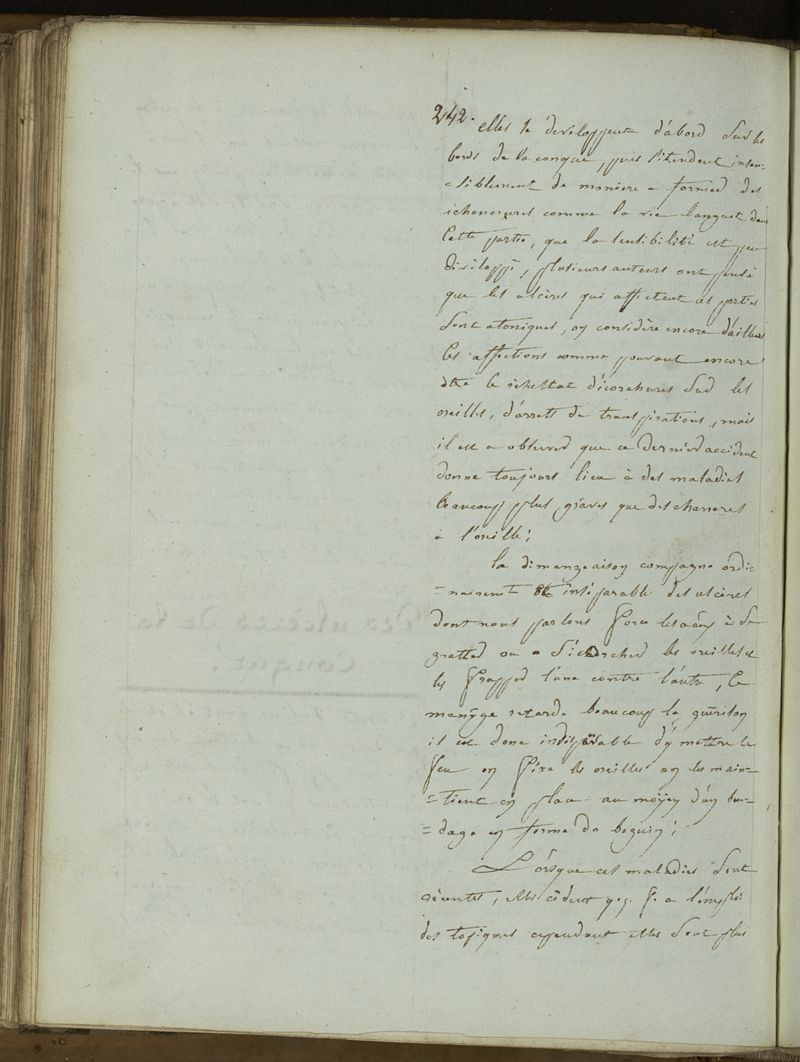 242.
elles se developpent d'abord sur les
bords de la conque, puis s'etendent insen=
=siblement de maniere a former des
ichancrures comme la vie languit dans
Cette partie, que la sensibilité est peu
developpé, plusieurs auteurs ont pensé
que les ulcères qui affectent ces parties
sont atoniques, on considère encore d'ailleurs
les affections comme pouvant encore
être le résultat d'écorchures sur les
oreilles, d'arrets de transpirations, mais
il est a observer que ce dernier accident
donne toujours lieu à des maladies
beaucoup plus graves que des chancres
a l'oreille;
la dimangeaison compagne ordi=
=nairement inséparable des ulcères
dont nous parlons force les à se
gratter ou a s'écorcher les oreilles et
les frapper l'une contre l'autre, Ce
manège retarde beaucoup la guérison
il est donc d'y mettre le
feu on fixe les oreilles on les main=
=tient en place au moÿen d'un ban=
=dage en forme de beguin;
Lorsque ces maladies sont
récentes, elles cèdent q.q. f. a l'emploi
des topiques cependant elles sont plus